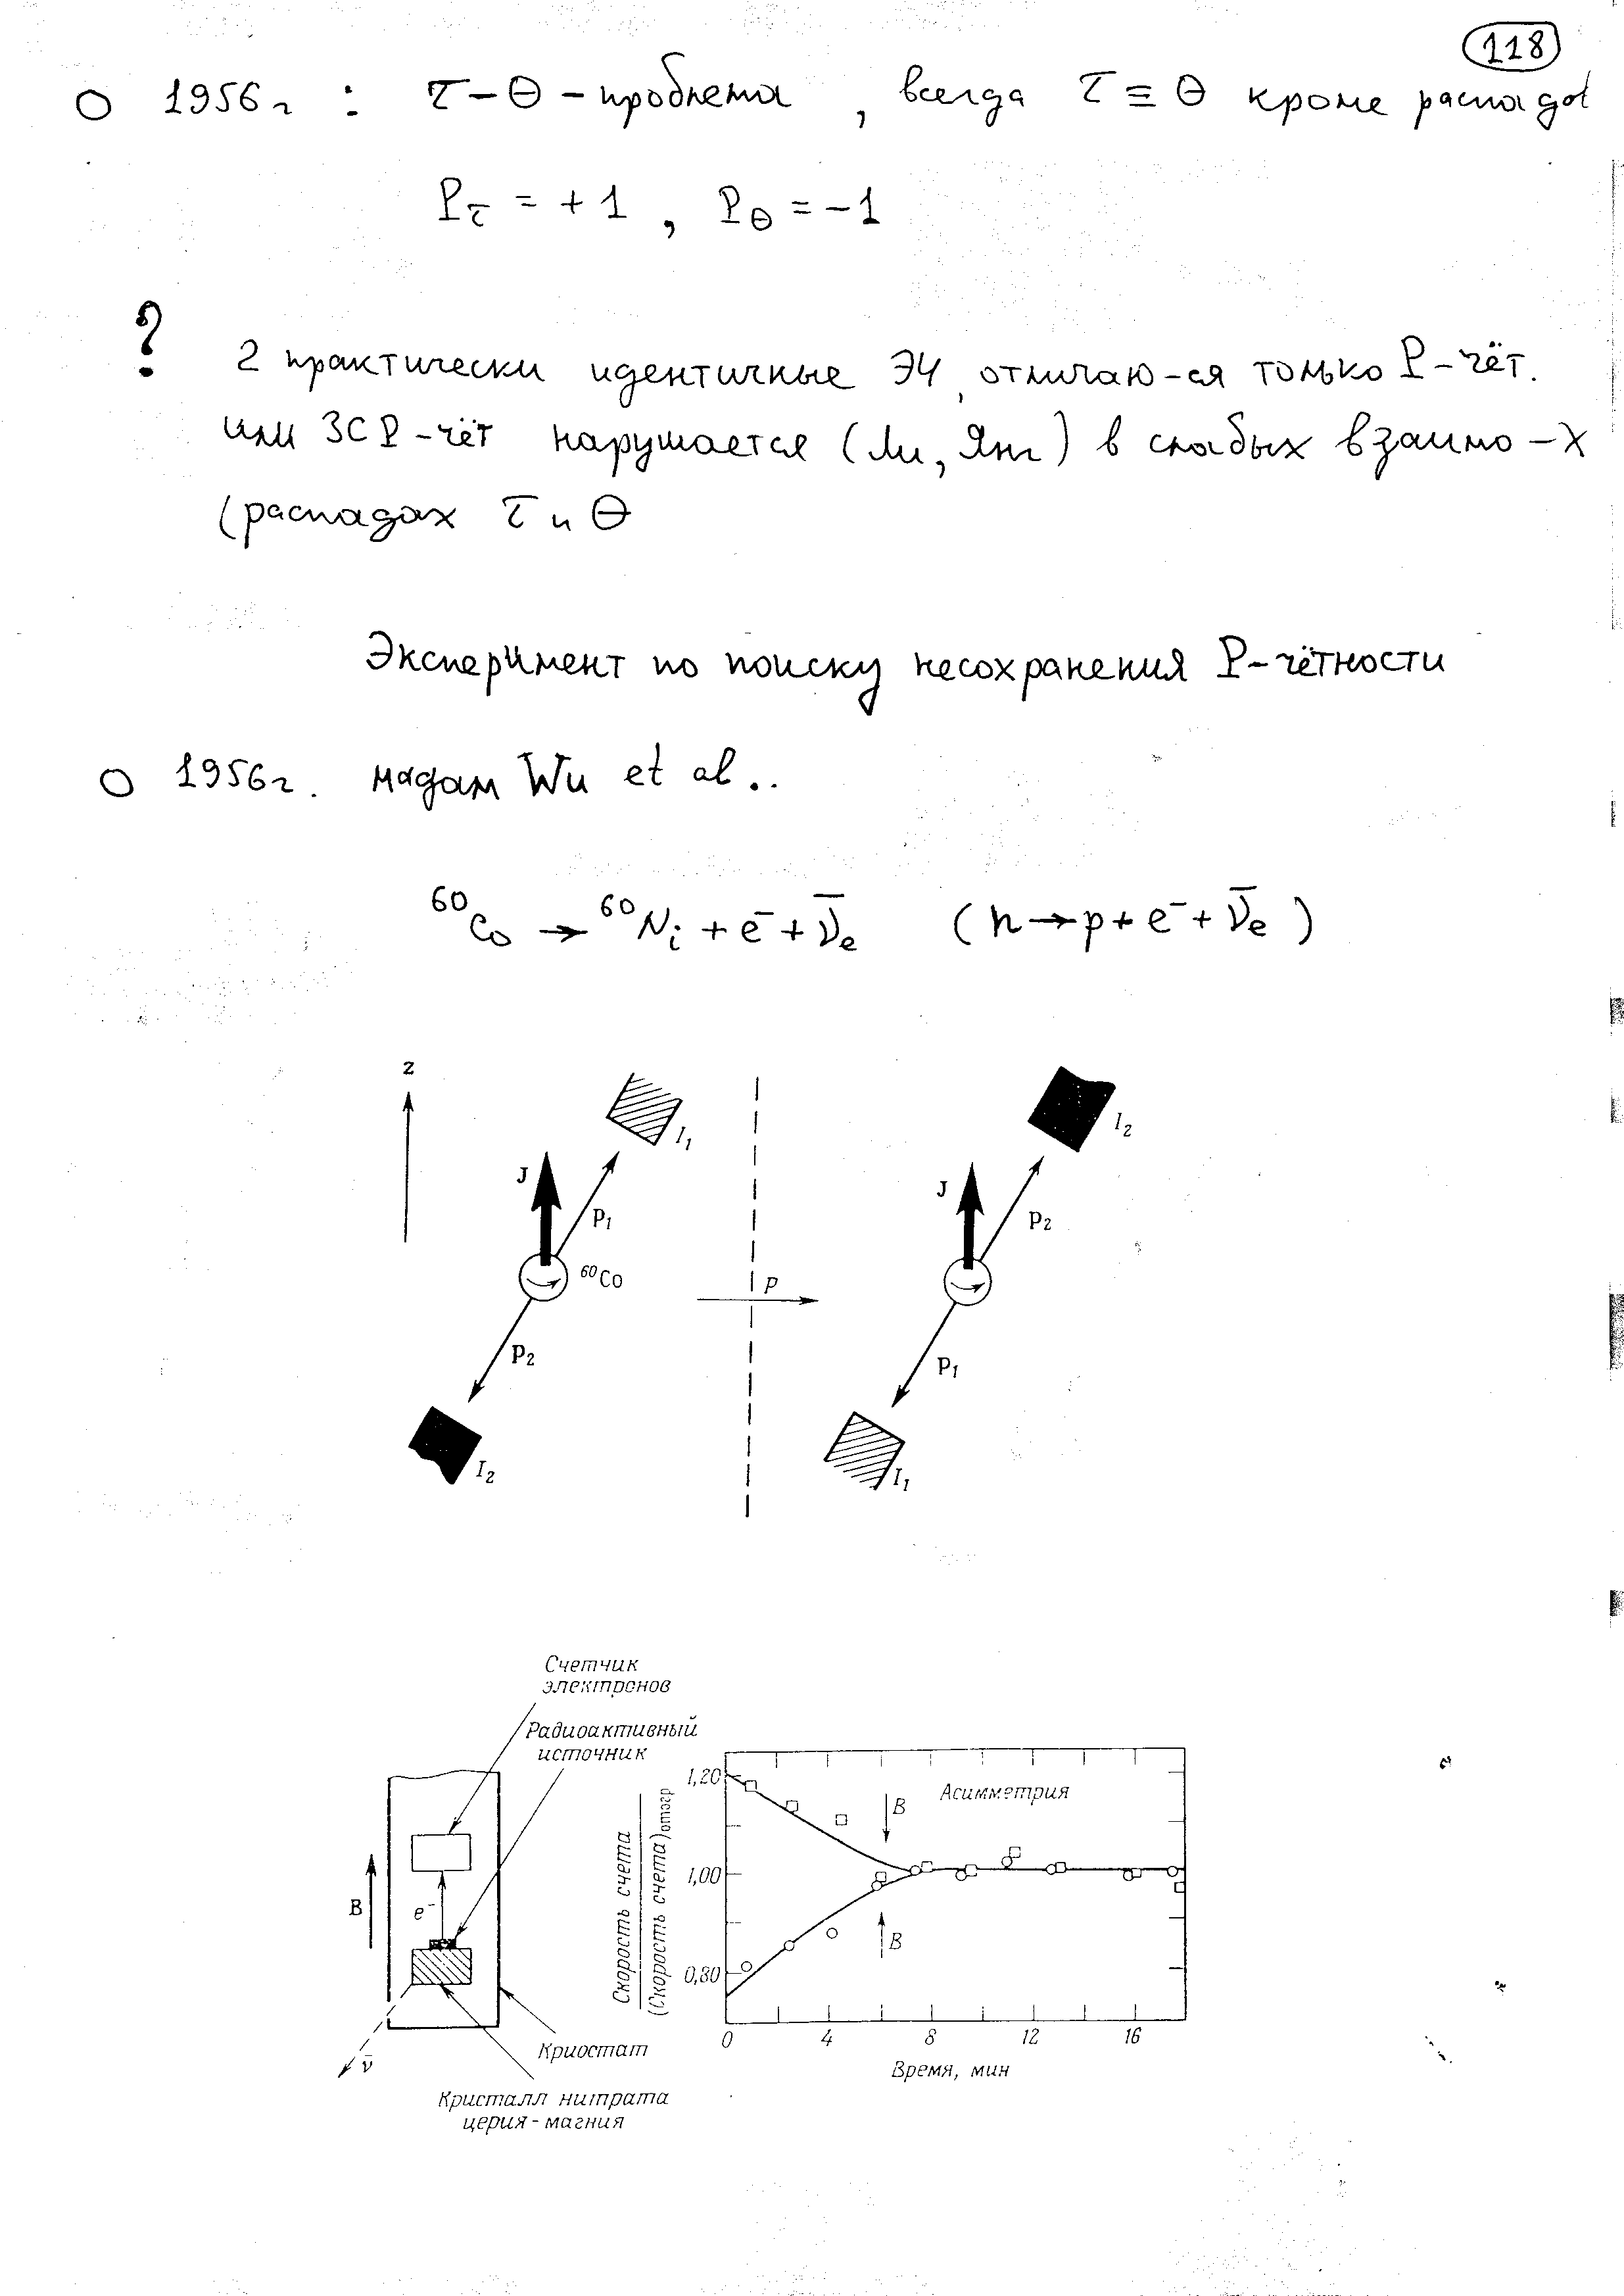 118
○ 1956г : τ-Θ-проблема, всегда τ ≡ Θ кроме распада
P_τ = +1, P_Θ = -1
? 2 практически идентичные ЭЧ, отличаю-ся только P-чёт.
или ЗС P-чёт нарушается (Ли, Янг) в слабых взаимо-х
(распадах τ и Θ
Эксперимент по поиску несохранения P-чётности
○ 1956г. мадам Wu et al..
⁶⁰Co → ⁶⁰Ni + e⁻ + ν̄_e (n → p + e⁻ + ν̄_e)
z
I₁
I₂
J
J
p₁
p₂
⁶⁰Co
P
p₂
p₁
I₂
I₁
Счетчик
электронов
Радиоактивный
источник
B
e⁻
ν̄
Криостат
Кристалл нитрата
церия-магния
Скорость счета
(Скорость счета)отогр
1,20
1,00
0,80
Асимметрия
B
B
0 4 8 12 16
Время, мин